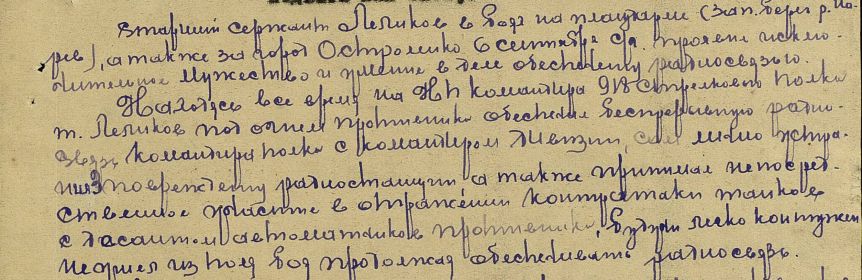 Старший сержант Лепиков в боях на плацдарме (зап. берег р. На-
рев), а также за город Остроленко 6 сентября с/г. проявил исклю-
чительное мужество и умение в деле обеспечения радиосвязью.
Находясь все время на НП командира 918 стрелкового полка
т. Лепиков под огнем противника обеспечил беспрерывную радио-
связь командира полка с командиром дивизии, сам лично устра-
нил 3 повреждения радиостанции а также принимал непосред-
ственное участие в отражении контратаки танков
с десантом автоматчиков противника, будучи легко контужен
не ушел из поля боя продолжая обеспечивать радиосвязь.